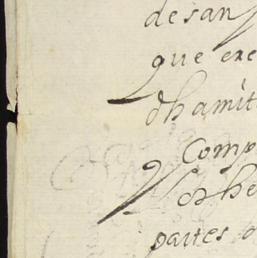 de san
que exe
dhamit
Comp
othe
partes o